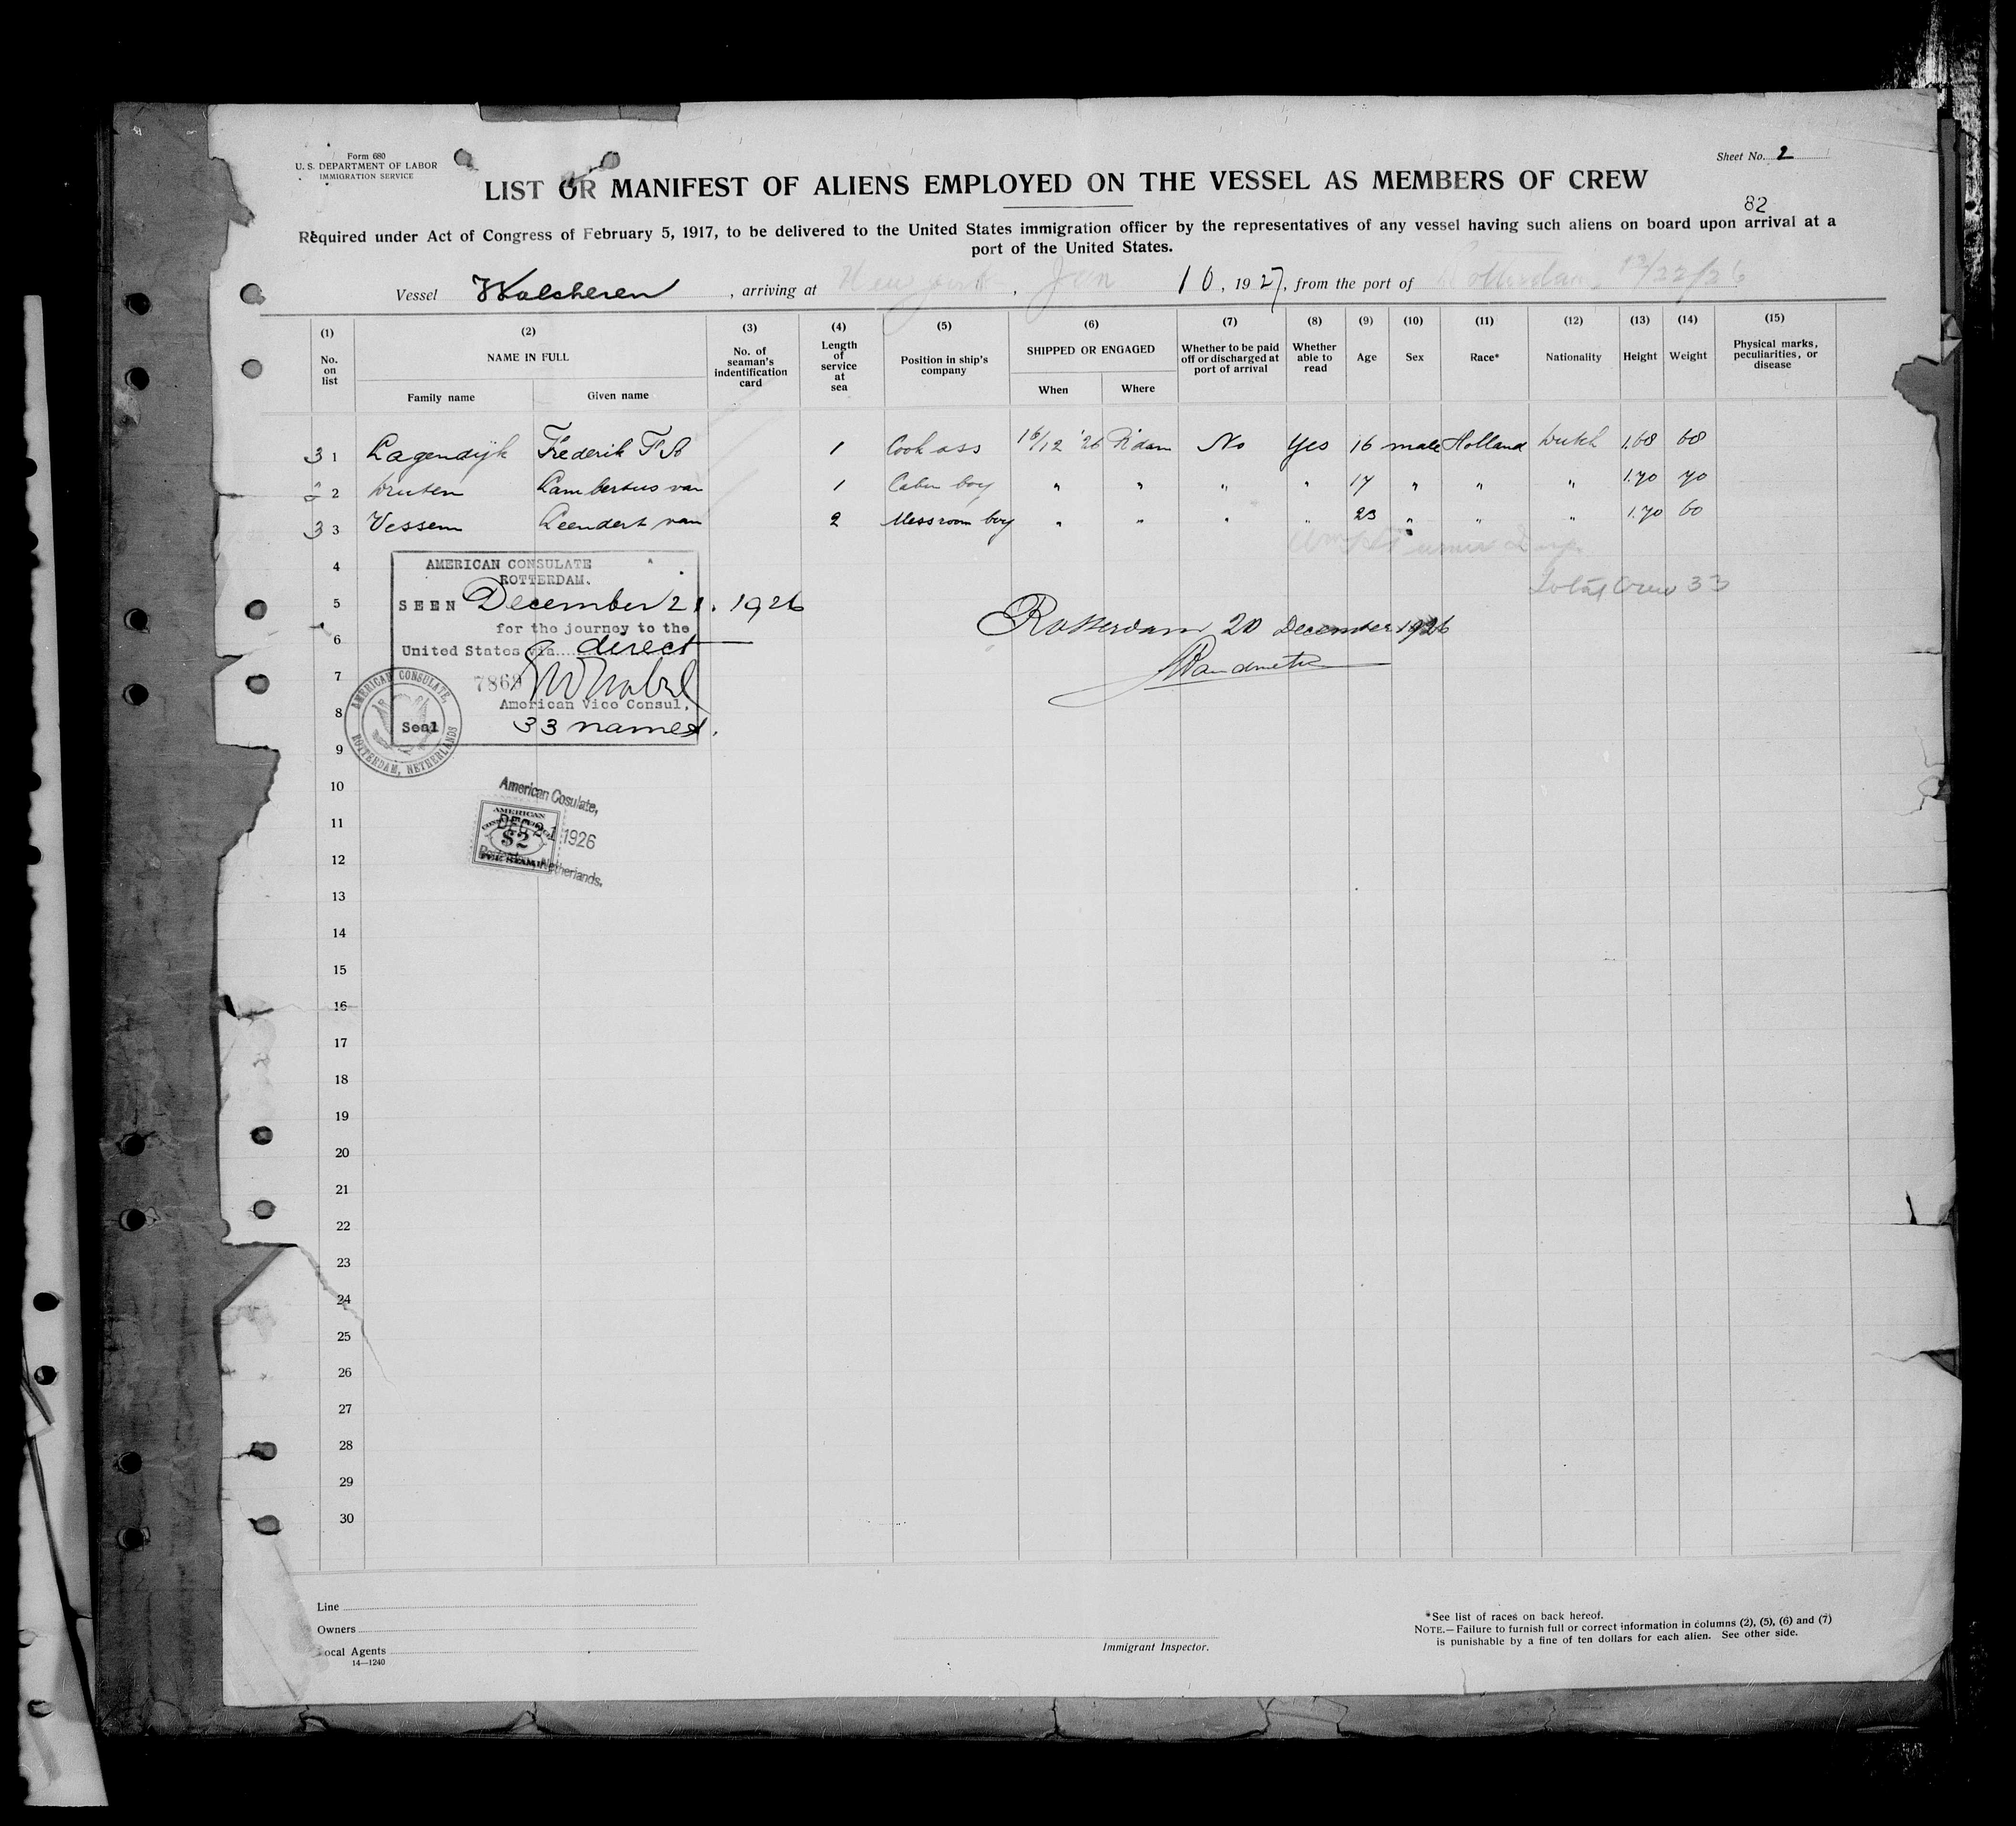 Form 680
U. S. DEPARTMENT OF LABOR
IMMIGRATION SERVICE
Sheet No. 2
LIST OR MANIFEST OF ALIENS EMPLOYED ON THE VESSEL AS MEMBERS OF CREW
82
Required under Act of Congress of February 5, 1917, to be delivered to the United States immigration officer by the representatives of any vessel having such aliens on board upon arrival at a
port of the United States.
Vessel Walcheren, arriving at New York, Jan 10, 1927, from the port of Rotterdam, 12/22/26
(1) (2) (3) (4) (5) (6) (7) (8) (9) (10) (11) (12) (13) (14) (15)
No. on list NAME IN FULL No. of seaman's indentification card Length of service at sea Position in ship's company SHIPPED OR ENGAGED Whether to be paid off or discharged at port of arrival Whether able to read Age Sex Race* Nationality Height Weight Physical marks, peculiarities, or disease
Family name Given name When Where
3 1 Lagendijk Frederik F 1 Cook ass 16/12 '26 R'dam No Yes 16 male Holland Dutch 1.68 68
2 Druten Lambertus van 1 Cabin boy " " " " 17 " " " 1.70 70
3 3 Vessem Leendert van 2 Messroom boy " " " " 23 " " " 1.70 60
4
AMERICAN CONSULATE
ROTTERDAM.
Total Crew 33
5
SEEN December 21. 1926
for the journey to the
Rotterdam 20 December 1926
6
United States via direct
7
7869
American Vice Consul.
8
Seal
33 names.
AMERICAN CONSULATE, ROTTERDAM, NETHERLANDS
9
10
American Cosulate,
AMERICAN
11
DEC 21 1926
$2
12
FEE STAMP
Netherlands.
13
14
15
16
17
18
19
20
21
22
23
24
25
26
27
28
29
30
Line
Owners
Local Agents
14—1240
Immigrant Inspector.
*See list of races on back hereof.
NOTE.—Failure to furnish full or correct information in columns (2), (5), (6) and (7)
is punishable by a fine of ten dollars for each alien. See other side.